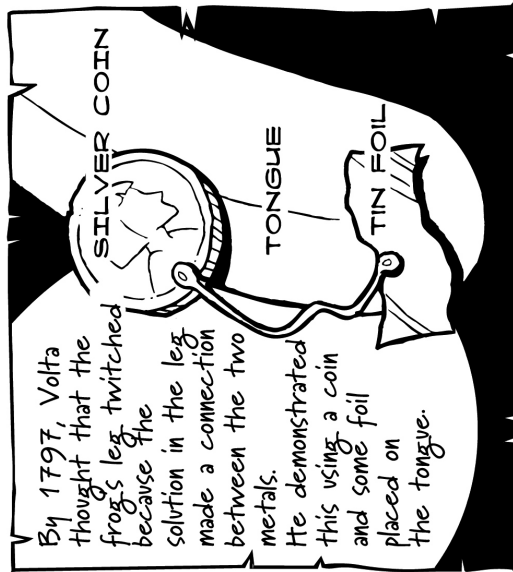 By 1797, Volta
thought that the
frogs leg twitched
because the
solution in the leg
made a connection
between the two
metals.
He demonstrated
this using a coin
and some foil
placed on
the tongue.
SILVER COIN
TONGUE
TIN FOIL